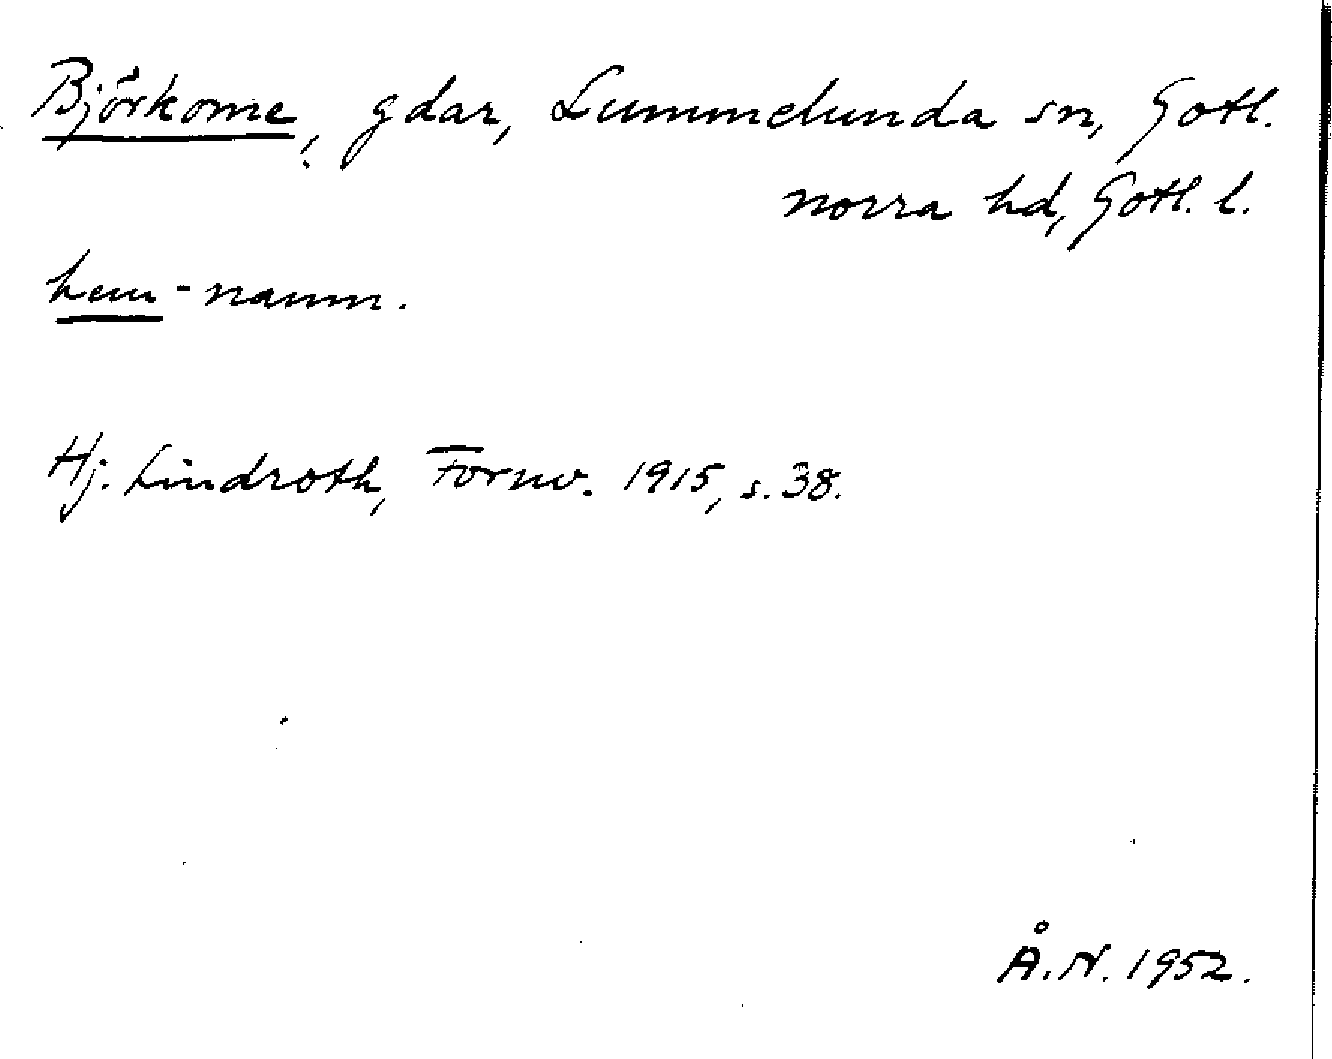 Björkome, gdar, Lummelunda sn, Gotl.
norra hd, Gotl. l.
hem-namn.
Hj. Lindroth, Fornv. 1915, s. 38.
Å. N. 1952.